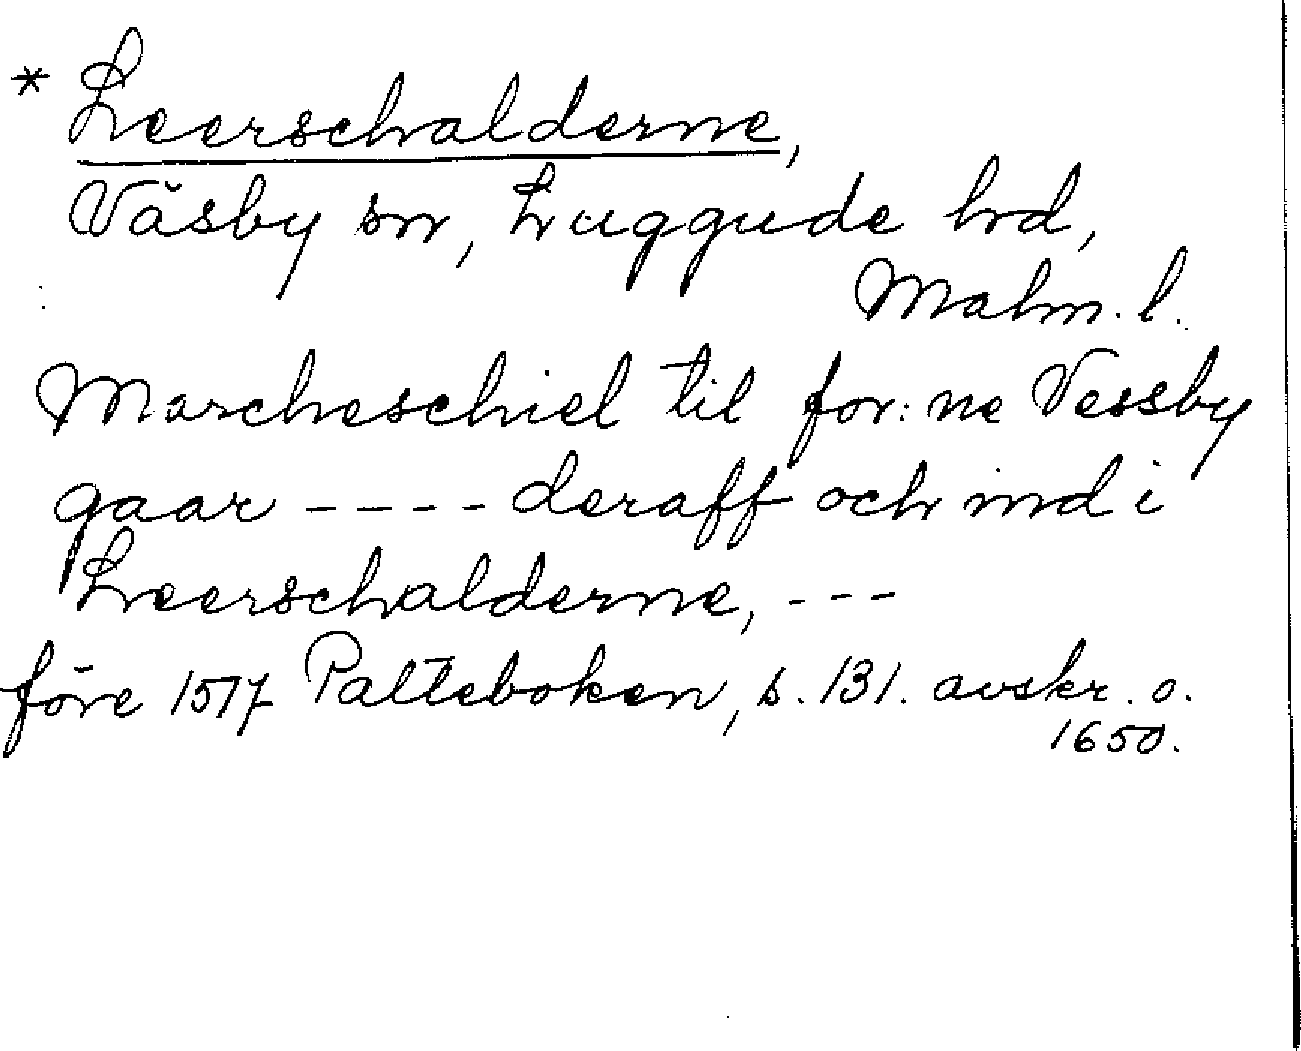 * Leerschalderne,
Väsby sn, Luggude hd,
Malm. l.
Marcheschiel til for: ne Vessby
gaar ---- deraff och ind i
Leerschalderne, ---
före 1517 Palteboken, s. 131. avskr. o.
1650.